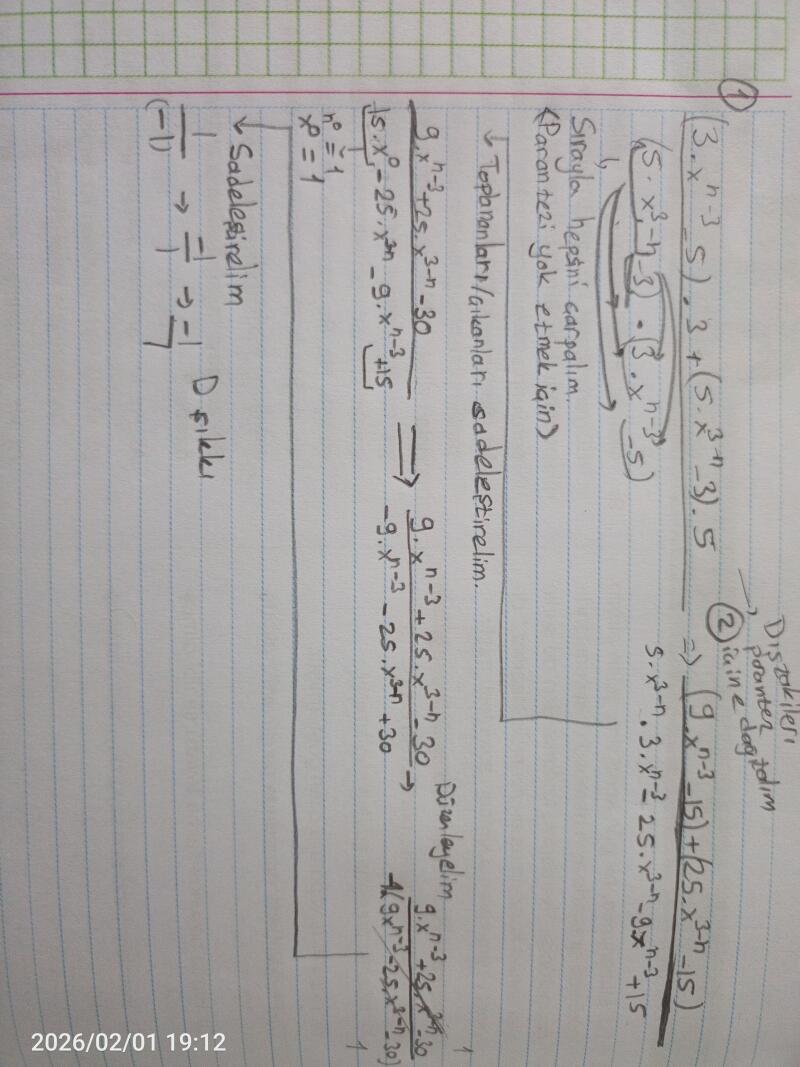 ①
(3.x^(n-3) - 5).3 + (5.x^(3-n) - 3).5
(5.x^(3-n) - 3) . (3.x^(n-3) - 5)
→ Dıştakileri
parantez
② içine dağıtalım
=> (9.x^(n-3) - 15) + (25.x^(3-n) - 15)
5.x^(3-n) . 3.x^(n-3) - 25.x^(3-n) - 9.x^(n-3) + 15
Sırayla hepsni çarpalım.
(Parantezi yok etmek için)
↓ Toplananları/çıkanları sadeleştirelim.
9.x^(n-3) + 25.x^(3-n) - 30
15.x^0 - 25.x^(3-n) - 9.x^(n-3) + 15
n^0 = 1
x^0 = 1
=> 9.x^(n-3) + 25.x^(3-n) - 30
-9.x^(n-3) - 25.x^(3-n) + 30 →
Düzenleyelim
9.x^(n-3) + 25.x^(3-n) - 30 1
-1(9x^(n-3) + 25.x^(3-n) - 30) 1
↓ Sadeleştirelim
1
(-1) → -1
1 → -1
D şıkkı
2026/02/01 19:12